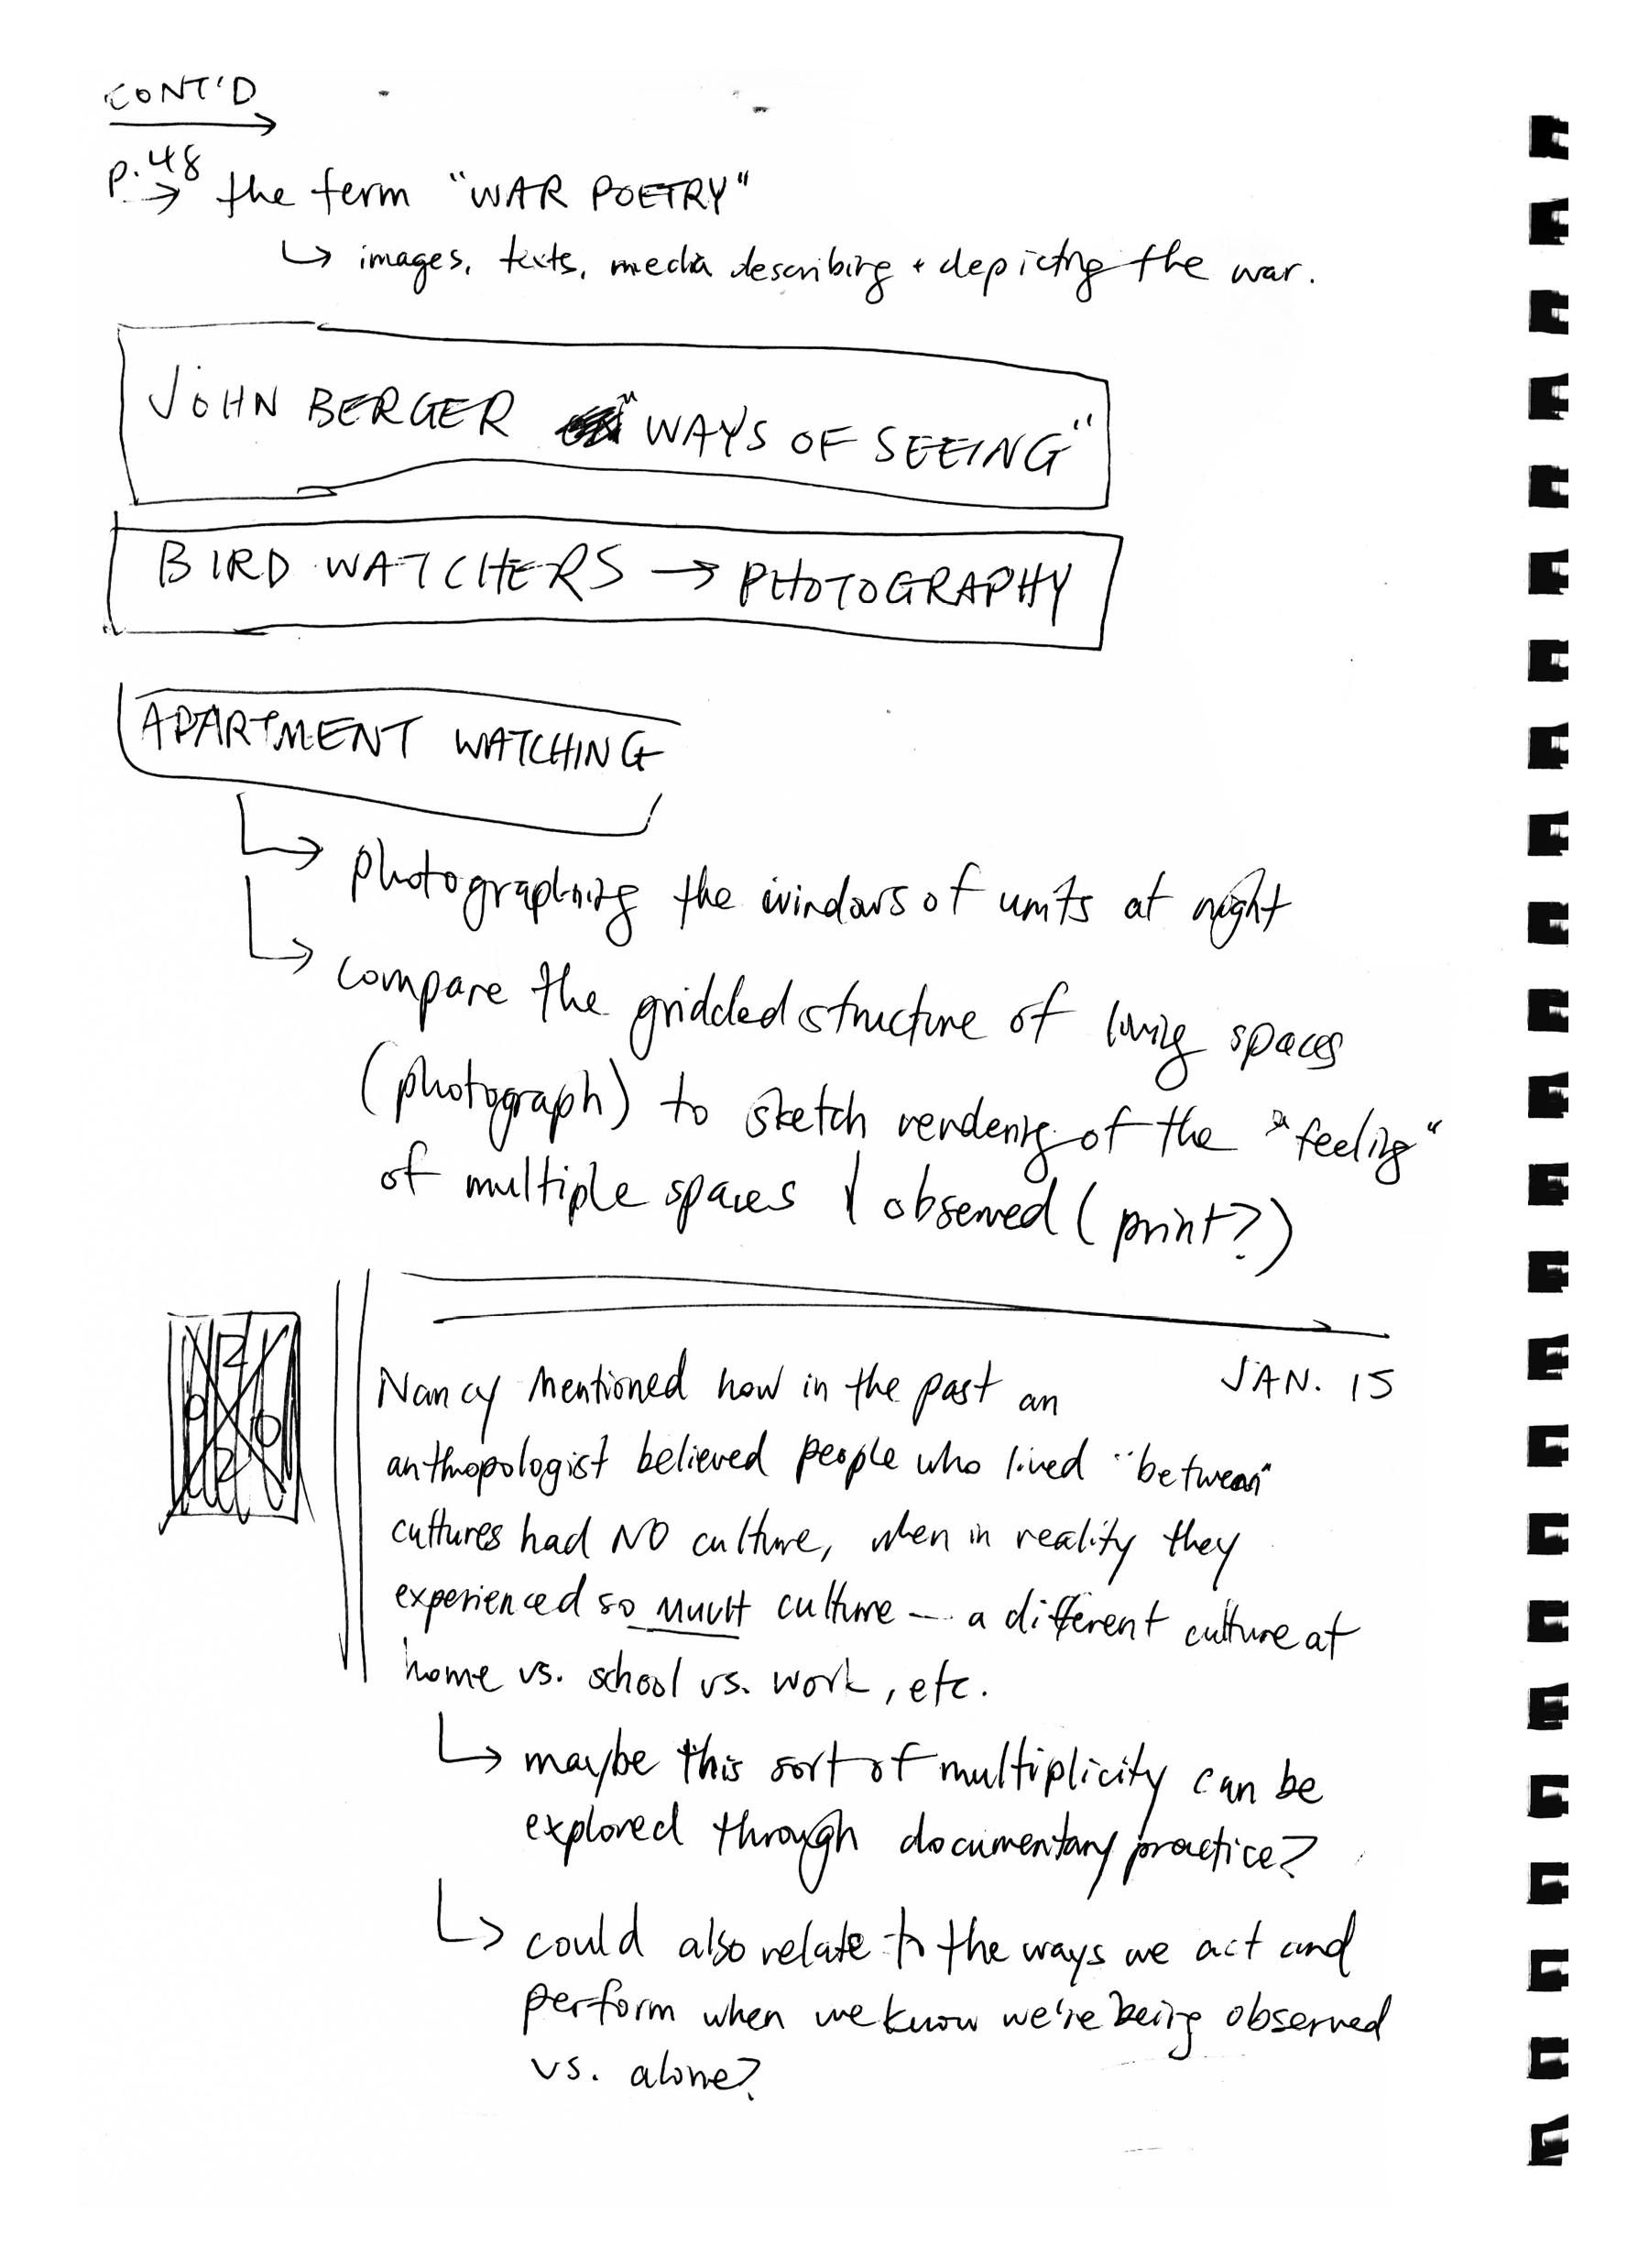 CONT'D
p.48 → the term "WAR POETRY"
↳ images, texts, media describing + depicting the war.
JOHN BERGER "WAYS OF SEEING"
BIRD WATCHERS → PHOTOGRAPHY
APARTMENT WATCHING
↳ photographing the windows of units at night
↳ compare the gridded structure of living spaces
(photograph) to sketch rendering of the "feeling"
of multiple spaces I observed (print?)
JAN. 15
Nancy mentioned how in the past an
anthropologist believed people who lived "between"
cultures had NO culture, when in reality they
experienced so MUCH culture — a different culture at
home vs. school vs. work, etc.
↳ maybe this sort of multiplicity can be
explored through documentary practice?
↳ could also relate to the ways we act and
perform when we know we're being observed
vs. alone?